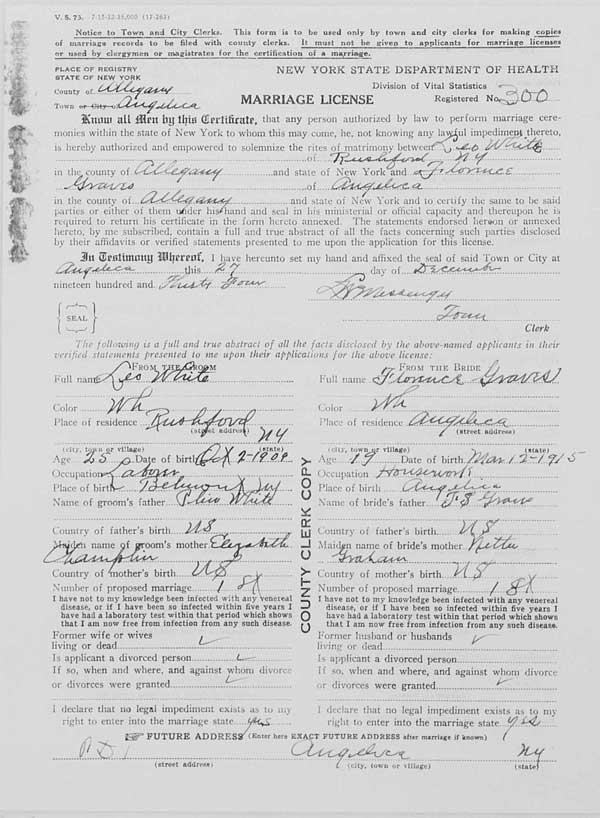 V. S. 73. 7-15-32-35,000 (17-263)
Notice to Town and City Clerks. This form is to be used only by town and city clerks for making copies
of marriage records to be filed with county clerks. It must not be given to applicants for marriage licenses
or used by clergymen or magistrates for the certification of a marriage.
PLACE OF REGISTRY
STATE OF NEW YORK
NEW YORK STATE DEPARTMENT OF HEALTH
County of Allegany
Division of Vital Statistics
Town or City of Angelica
MARRIAGE LICENSE
Registered No. 300
Know all Men by this Certificate, that any person authorized by law to perform marriage cere-
monies within the state of New York to whom this may come, he, not knowing any lawful impediment thereto,
is hereby authorized and empowered to solemnize the rites of matrimony between Leo White
of Rushford NY
in the county of Allegany and state of New York and Florence
Graves of Angelica
in the county of Allegany and state of New York and to certify the same to be said
parties or either of them under his hand and seal in his ministerial or official capacity and thereupon he is
required to return his certificate in the form hereto annexed. The statements endorsed hereon or annexed
hereto, by me subscribed, contain a full and true abstract of all the facts concerning such parties disclosed
by their affidavits or verified statements presented to me upon the application for this license.
In Testimony Whereof, I have hereunto set my hand and affixed the seal of said Town or City at
Angelica this 27 day of December
nineteen hundred and Thirty Four
Messenger
SEAL
Town
Clerk
The following is a full and true abstract of all the facts disclosed by the above-named applicants in their
verified statements presented to me upon their applications for the above license:
FROM THE GROOM
Full name Leo White
Color Wh
Place of residence Rushford
(street address)
NY
(city, town or village) (state)
Age 25 Date of birth Oct 2-1909
Occupation Labor
Place of birth Belmont NY
Name of groom's father White
Country of father's birth US
Maiden name of groom's mother Elizabeth
Champlin
Country of mother's birth US
Number of proposed marriage 1 st
I have not to my knowledge been infected with any venereal
disease, or if I have been so infected within five years I
have had a laboratory test within that period which shows
that I am now free from infection from any such disease.
Former wife or wives
living or dead
Is applicant a divorced person
If so, when and where, and against whom divorce
or divorces were granted
I declare that no legal impediment exists as to my
right to enter into the marriage state yes
COUNTY CLERK COPY
FROM THE BRIDE
Full name Florence Graves
Color Wh
Place of residence Angelica
(street address)
(city, town or village) (state)
Age 19 Date of birth Mar 12-1915
Occupation Housework
Place of birth Angelica
Name of bride's father
Country of father's birth US
Maiden name of bride's mother
Graham
Country of mother's birth US
Number of proposed marriage 1 st
I have not to my knowledge been infected with any venereal
disease, or if I have been so infected within five years I
have had a laboratory test within that period which shows
that I am now free from infection from any such disease.
Former husband or husbands
living or dead
Is applicant a divorced person
If so, when and where, and against whom divorce
or divorces were granted
I declare that no legal impediment exists as to my
right to enter into the marriage state yes
FUTURE ADDRESS (Enter here EXACT FUTURE ADDRESS after marriage if known)
Angelica NY
(street address) (city, town or village) (state)